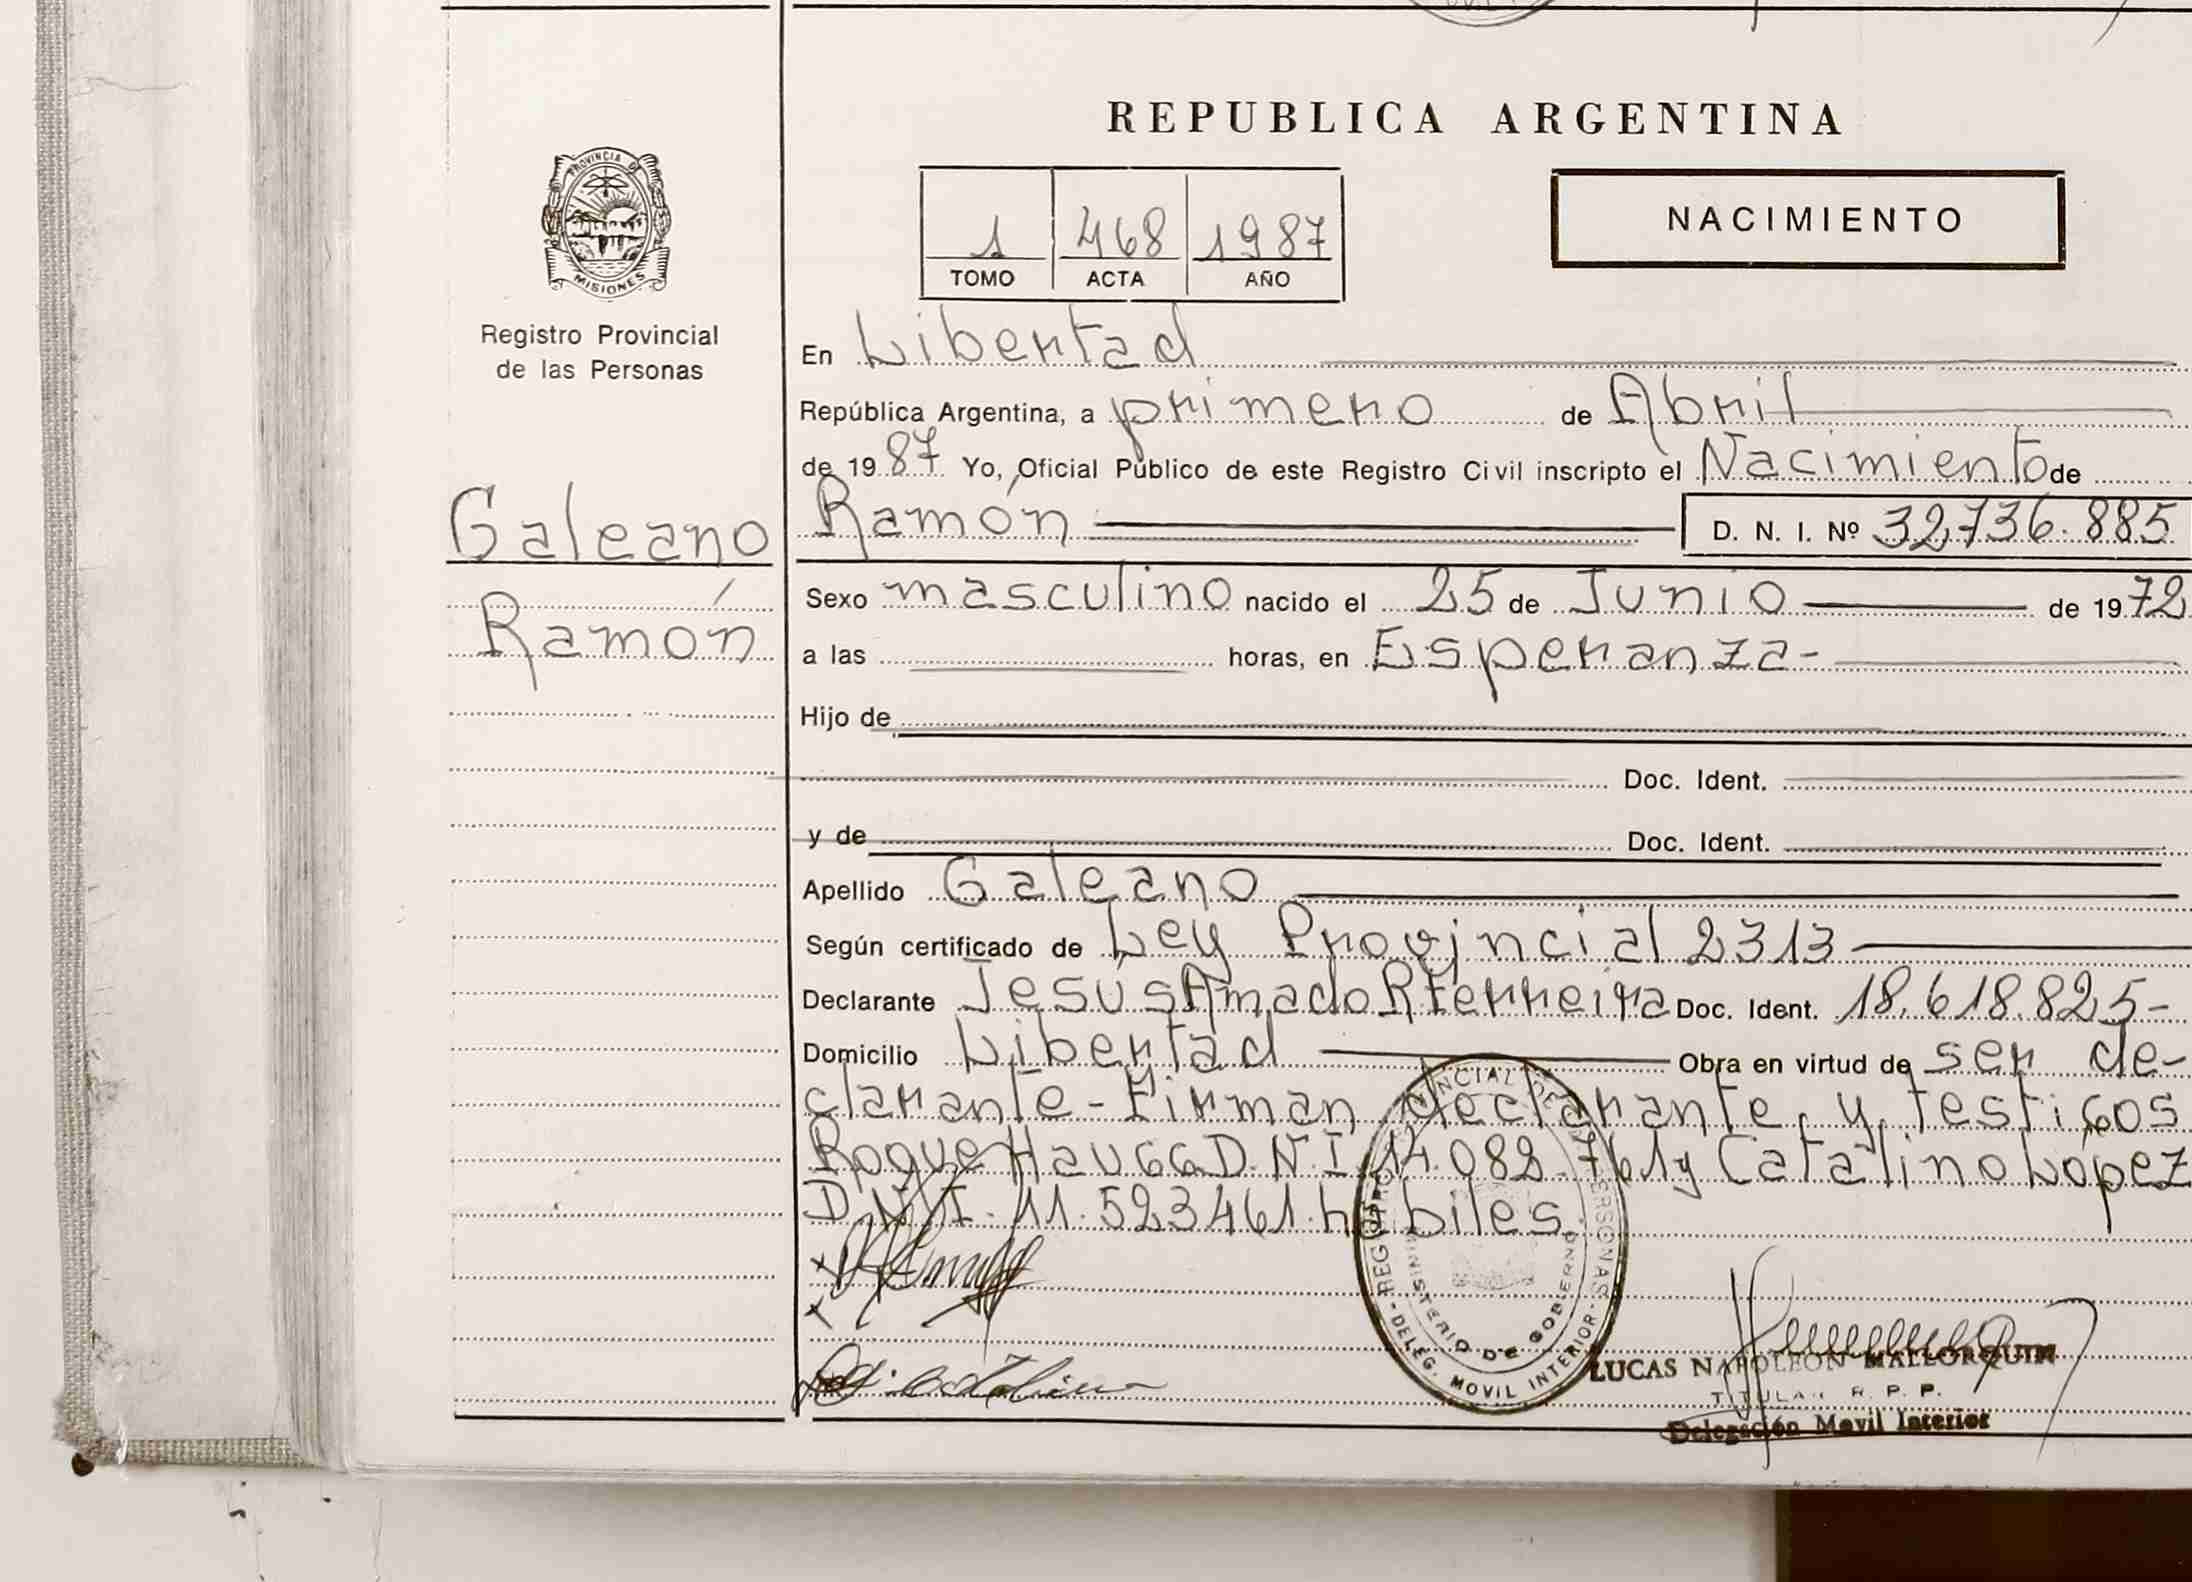 REPUBLICA ARGENTINA
PROVINCIA DE
MISIONES
Registro Provincial
de las Personas
1 468 1987
TOMO ACTA AÑO
NACIMIENTO
En Libertad
República Argentina, a primero de Abril
de 1987 Yo, Oficial Público de este Registro Civil inscripto el Nacimiento de
Galeano
Ramón
Ramón D. N. I. Nº 32736.885
Sexo masculino nacido el 25 de Junio de 1972
a las horas, en Esperanza-
Hijo de
Doc. Ident.
y de Doc. Ident.
Apellido Galeano
Según certificado de Ley Provincial 2313
Declarante Jesús Amado R Ferreira Doc. Ident. 18.618.825-
Domicilio Libertad Obra en virtud de ser de-
clarante-Firman declarante y testigos
Roque Haugg D.N.I. 14.082.761 y Catalino López
D.N.I. 11.523461. hábiles
REGISTRO PROVINCIAL DE LAS PERSONAS
MINISTERIO DE GOBIERNO
-DELEG. MOVIL INTERIOR-
LUCAS NAPOLEON MALLORQUIN
TITULAR R. P. P.
Delegación Movil Interior